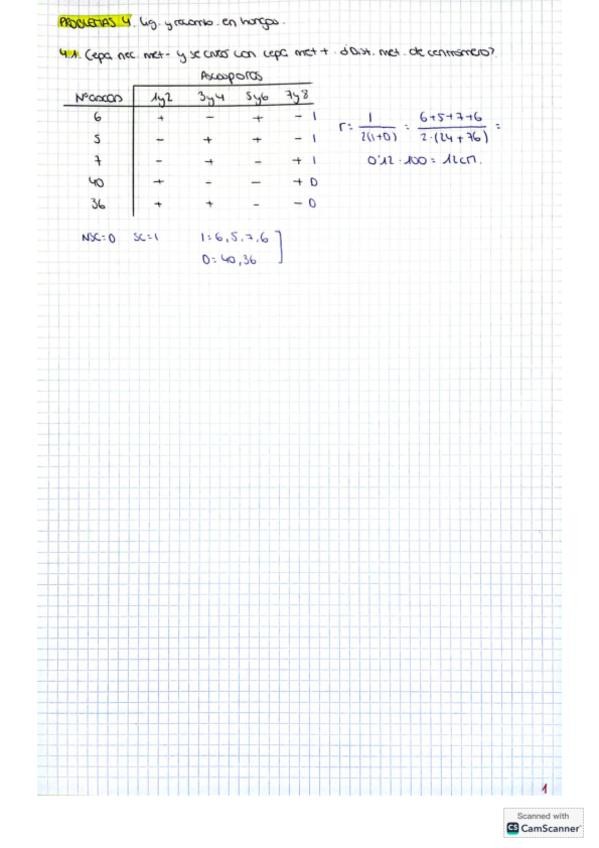 PROBLEMAS 4. Lig. y recomb. en hongos.
4.1. Cepa nec. met- y se cruzó con cepa met+. ¿Dist. met. de centrómero?
Ascosporas
Nº ascas 1y2 3y4 5y6 7y8
6 + - + - 1
5 - + + - 1
7 - + - + 1
40 + - - + 0
36 + + - - 0
r = 1 / 2(1+0) = 6+5+7+6 / 2·(24+76) =
0'12 · 100 = 12cM.
NSC=0 SC=1 1=6,5,7,6
0=40,36
1
Scanned with
CS CamScanner